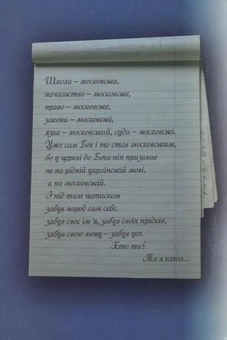 Школа – московська,
начальство – московське,
право – московське,
закони – московські,
язик – московський, суди – московські.
Уже сам Бог і то став московським,
бо у церкві до Бога піп призивав
не на рідній українській мові,
а на московській.
І під тим натиском
забув народ сам себе,
забув своє ім'я, забув своїх предків,
забув свою мову – забув усе.
Хто ти?
Та я хахол...